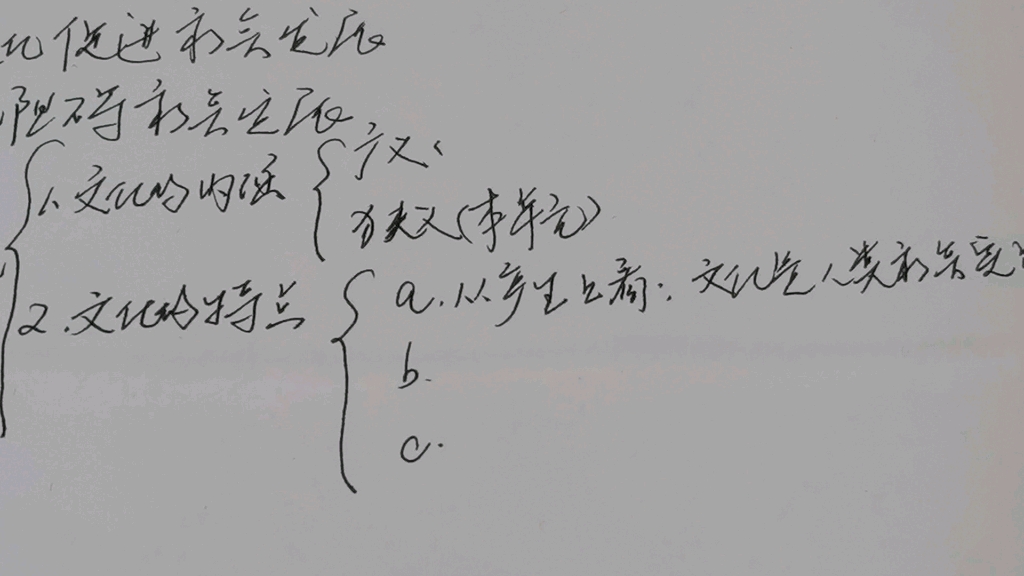 化促进社会发展
阻碍社会发展
1、文化的内涵 广义、
狭义(本单元)
2.文化的特点 a.从产生上看:文化是人类社会实
b.
c.